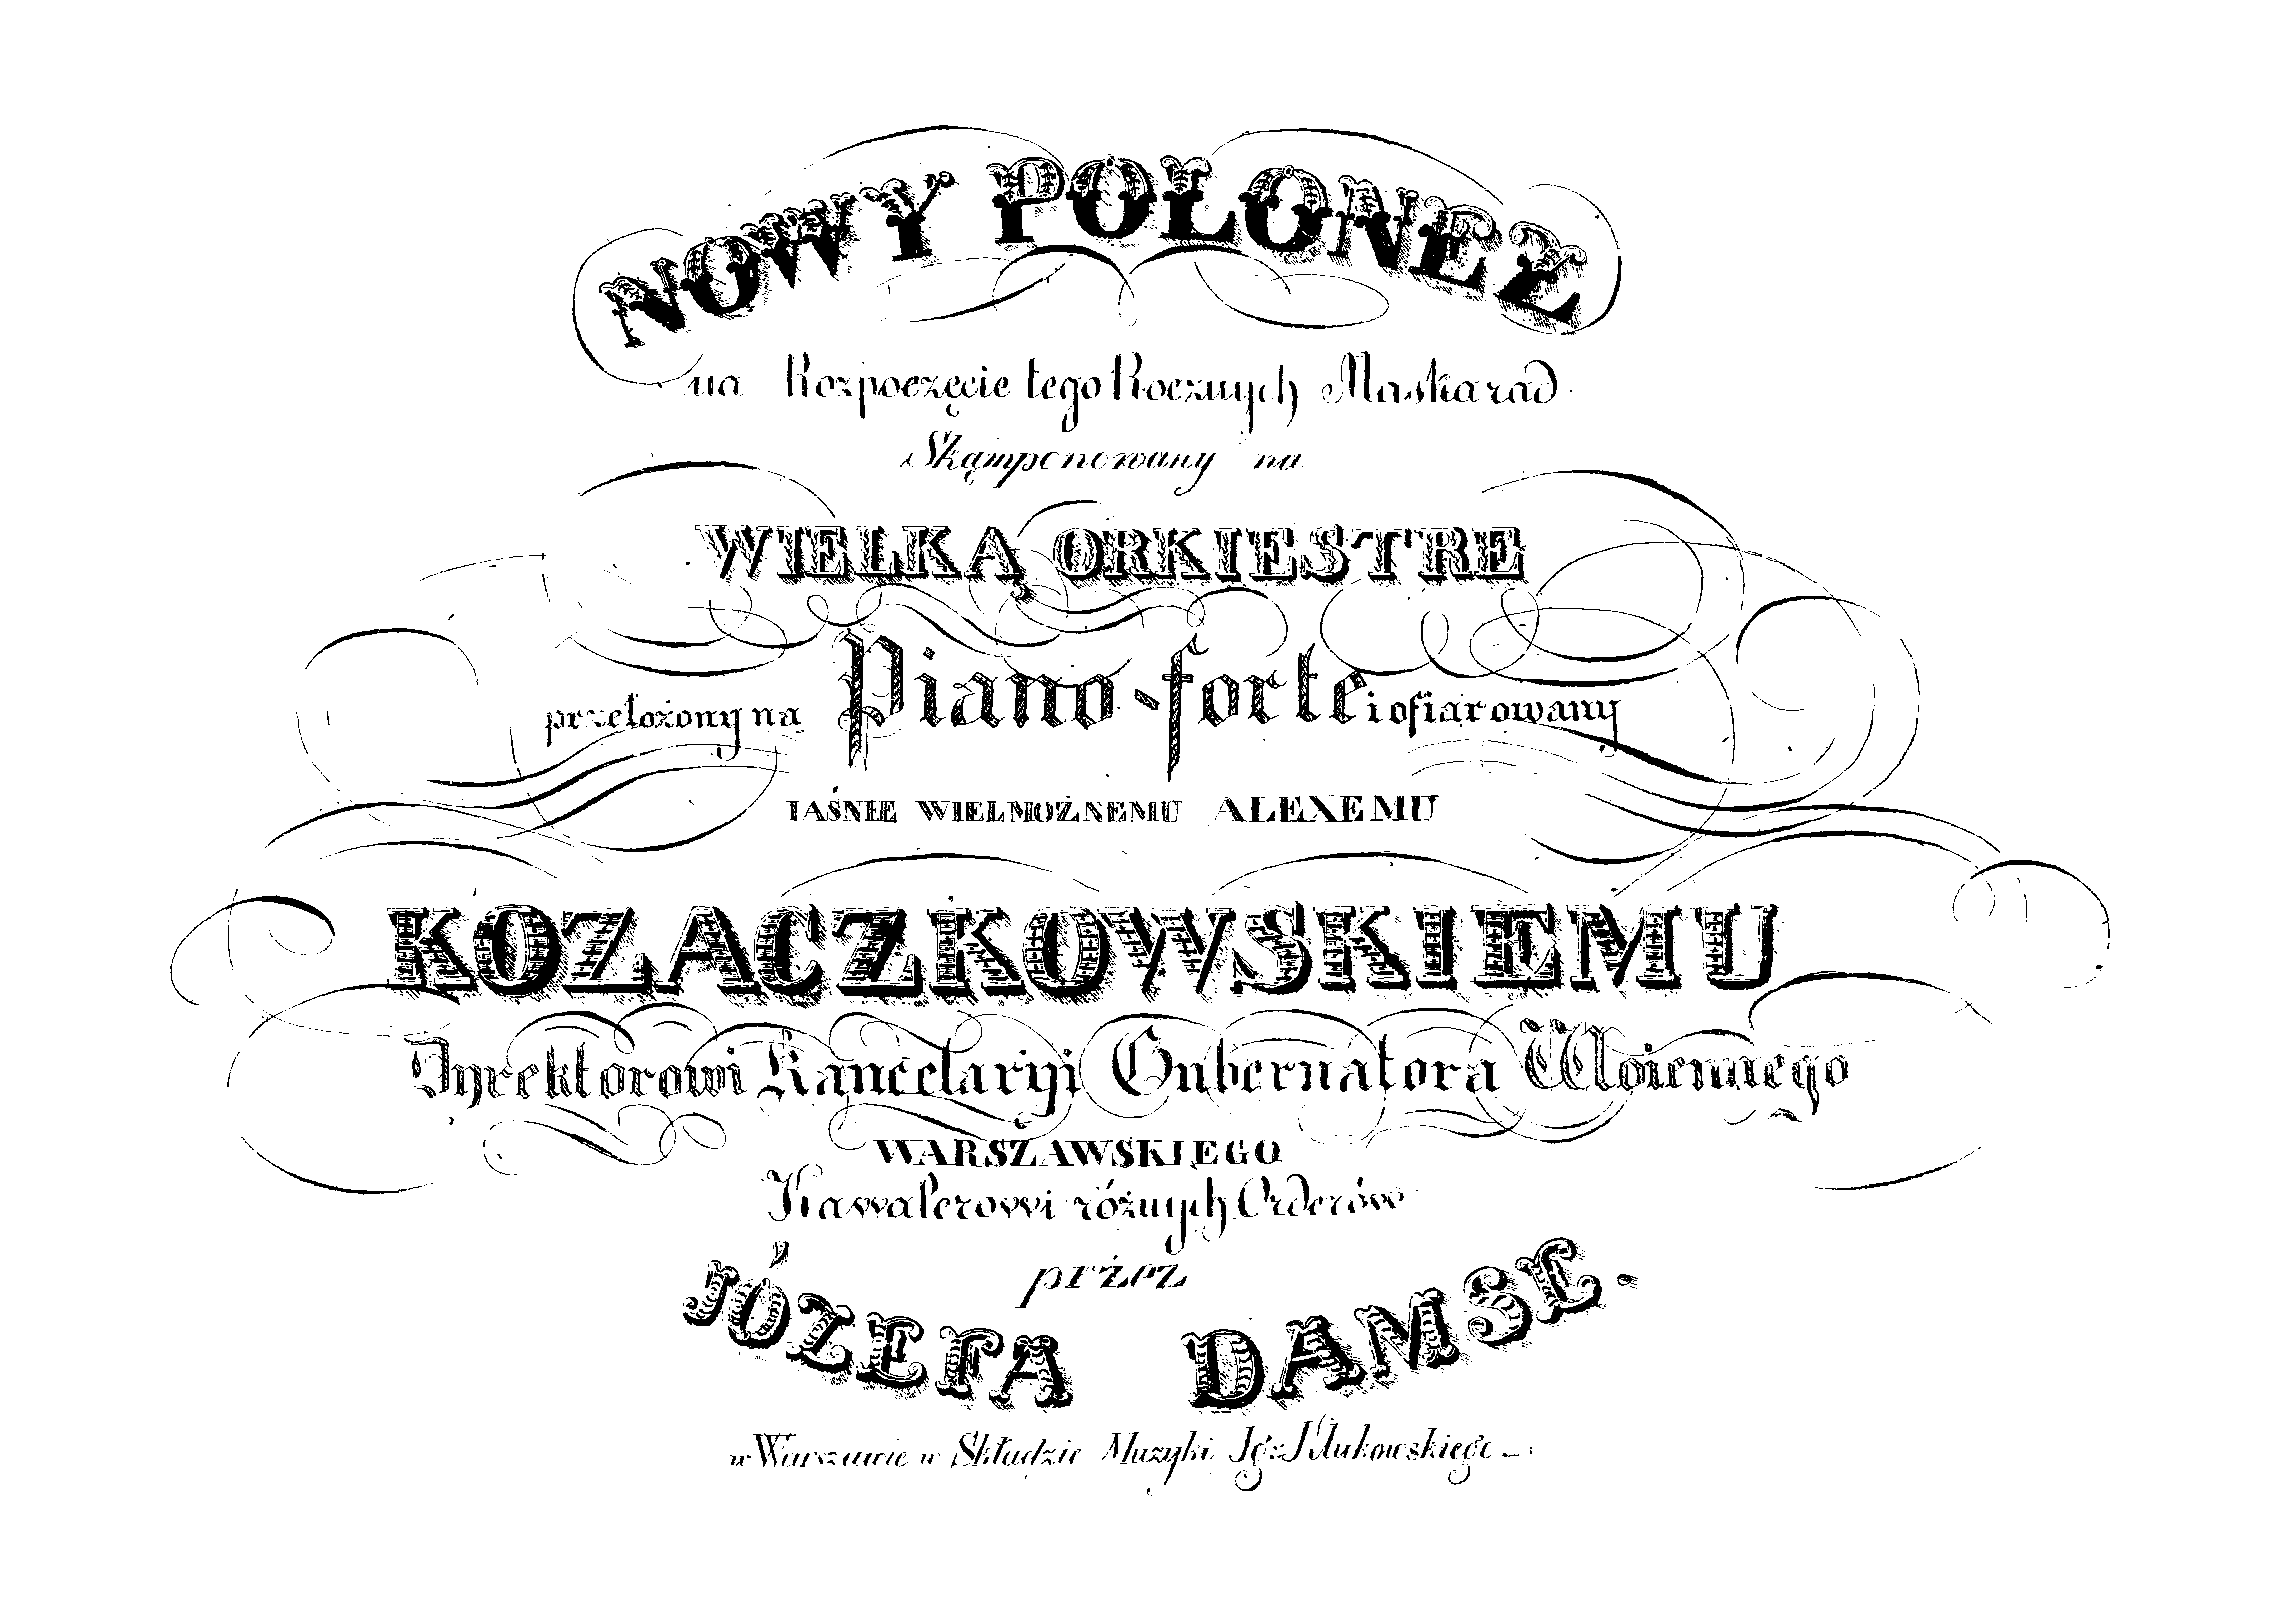 NOWY POLONEZ
na Rozpoczęcie tego Rocznych Maskarad
Skąmponowany na
WIELKĄ ORKIESTRE
przełożony na Piano-forte i ofiarowany
IAŚNIE WIELMOŻNEMU ALEXEMU
KOZACZKOWSKIEMU
Dyrektorowi Kancelaryi Gubernatora Woiennego
WARSZAWSKIEGO
Kawalerowi różnych Orderów
przez
JÓZEFA DAMSE.
w Warszawie w Składzie Muzyki Ig: Klukowskiego